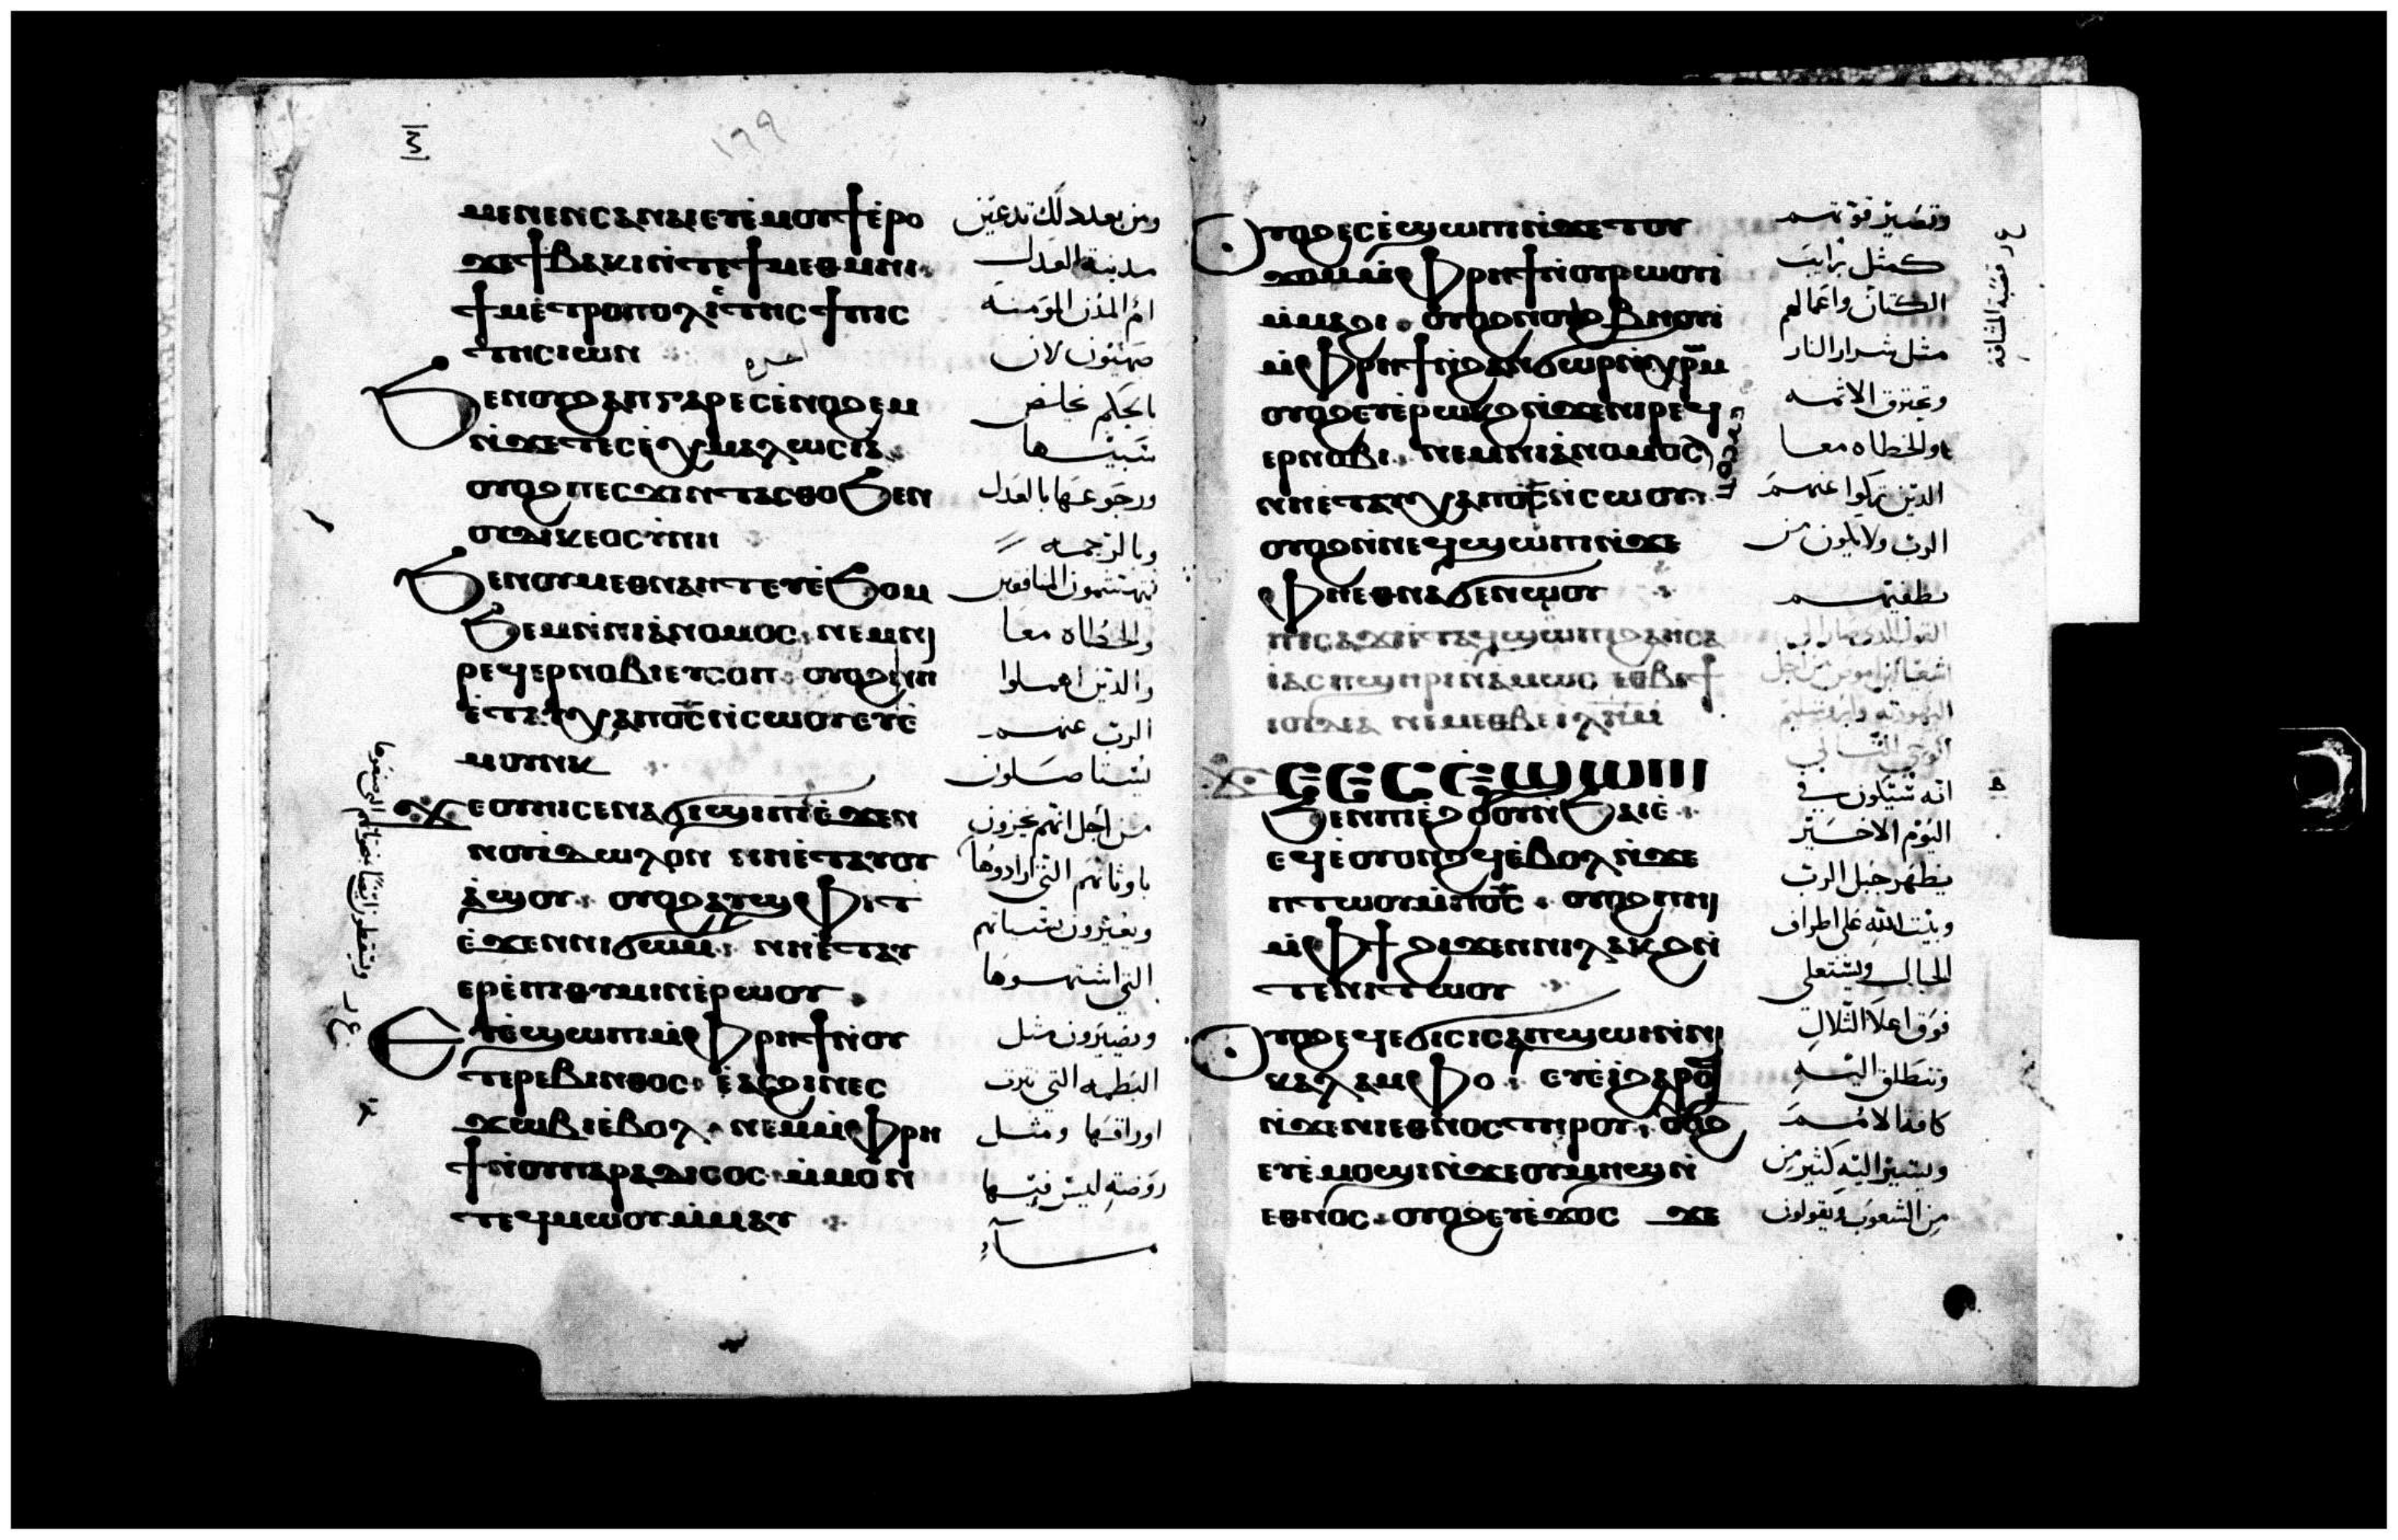 ⲙⲉⲛⲉⲛⲥⲁⲛⲁⲓⲉⲩⲉ̀ⲙⲟⲩϯⲉ̀ⲣⲟ
ϫⲉϯⲃⲁⲕⲓⲛ̀ⲧⲉϯⲙⲉⲑⲙⲏⲓ
ϯⲙⲉ̀ⲧⲣⲟⲡⲟⲗⲓ̀ⲧⲏⲥϯⲡⲓⲥ
ⲧⲏⲥⲓⲱⲛ
ϧⲉⲛⲟⲩϩⲁⲡⲅⲁⲣⲉⲥⲉ̀ⲛⲟϩⲉⲙ
ⲛ̀ϫⲉⲧⲉⲥⲉ̀ⲭⲙⲁⲗⲱⲥⲓⲁ̀
ⲟⲩⲟϩⲡⲉⲥϫⲓⲛⲧⲁⲥⲑⲟϧⲉⲛ
ⲟⲩⲇⲓⲕⲉⲟⲥⲩⲛⲏ
ϧⲉⲛⲟⲩⲙⲉⲑⲛⲁⲏⲧⲉⲩⲉ̀ϧⲟⲙ
ϧⲉⲙⲛ̀ⲛⲓⲁ̀ⲛⲟⲙⲟⲥ ⲛⲉⲙⲛⲓ
ⲣⲉϥⲉⲣⲛⲟⲃⲓⲉⲩⲥⲟⲡ ⲟⲩⲟϩⲛⲏ
ⲉ̀ⲧⲁⲩⲭⲁⲡⲟ̅ⲥ̅ⲛ̀ⲥⲱⲟⲩⲉⲩⲉ̀
ⲙⲟⲩⲛⲕ
ϫⲉⲟⲩⲏⲓⲥⲉⲛⲁϭⲓϣⲓⲡⲓⲉ̀ϫⲉⲛ
ⲛⲟⲩⲓ̀ⲇⲱⲗⲟⲛ ⲛⲛⲉ̀ⲧⲁⲩⲟⲩ
ⲁ̀ϣⲟⲩ ⲟⲩⲟϩⲁⲩϣⲫⲓⲧ
ⲉ̀ϫⲉⲛⲛⲓϭⲱⲙ ⲛⲛⲉ̀ⲧⲁⲩ
ⲉⲣⲉ̀ⲡⲓⲑⲩⲙⲓⲛⲉ̀ⲣⲱⲟⲩ
ⲉⲩⲉ̀ϣⲱⲡⲓⲙ̀ⲫⲣⲏϯⲛ̀ⲟⲩ
ⲧⲉⲣⲉⲃⲓⲛⲑⲟⲥ ⲉ̀ⲁⲥϩⲓⲛⲉⲥ
ϫⲱⲃⲓⲉ̀ⲃⲟⲗ ⲛⲉⲙⲙ̀ⲫⲣⲏ
ϯⲛ̀ⲟⲩⲡⲁⲣⲁⲇⲓⲥⲟⲥ ⲙ̀ⲙⲟⲛ
ⲧⲉϥⲙⲱⲟⲩⲙ̀ⲙⲁⲩ
ومن بعد ذلك تدعين
مدينة العدل
ام المدن المومنه
صهيون لان
بالحكم تخلص
سبيها
ورجوعها بالعدل
وبالرحمه
يتهشمون المنافقين
والخطاه معا
والذين اهملوا
الرب عنهم
يستاصلون
من اجل انهم يخزون
باوثانهم التي ارادوها
التي اشتهوها
ويصيرون مثل
البطمه التي نثرت
اوراقها ومثل
روضه ليس فيها
ماء
ⲟⲩⲟϩⲉⲥⲉ̀ϣⲱⲡⲓⲛ̀ϫⲉⲧⲟⲩ
ϫⲟⲙⲙ̀ⲫⲣⲏϯⲛ̀ⲟⲩⲣⲱⲟⲩⲓ
ⲙ̀ⲙⲁϩⲓ ⲟⲩⲟϩⲛⲟⲩϩⲃⲏⲟⲩⲓ
ⲙ̀ⲫⲣⲏϯⲛ̀ϩⲁⲛϭⲱⲣⲛ̀ⲭⲣⲱⲙ
ⲟⲩⲟϩⲉⲩⲉ̀ⲣⲱⲕϩⲛ̀ϫⲉⲛⲓⲣⲉϥ
ⲉⲣⲛⲟⲃⲓ ⲛⲉⲙⲛⲓⲁ̀ⲛⲟⲙⲟⲥ
ⲉⲩⲥⲟⲡ
ⲛⲛⲉ̀ⲧⲁⲩⲭⲁⲡⲟ̅ⲥ̅ⲛ̀ⲥⲱⲟⲩ
ⲟⲩⲟϩⲛ̀ⲛⲉϥϣⲱⲡⲓⲛ̀ϫⲉ
ⲫⲏⲉⲑⲛⲁϭⲉⲛⲱⲟⲩ
ⲡⲓⲥⲁϫⲓⲉ̀ⲧⲁϥϣⲱⲡⲓϩⲁⲏⲥⲁ
ⲓⲁⲥⲡϣⲏⲣⲓⲛⲁ̀ⲙⲱⲥ ⲉⲑⲃⲉϯ
ⲓⲟⲩⲇⲉⲁ ⲛⲉⲙⲉⲑⲃⲉⲓⲗ̅ⲏ̅ⲙ̅
ϫⲉⲉⲥⲉ̀ϣⲱⲡⲓ
ϧⲉⲛⲡⲓⲉ̀ϩⲟⲟⲩⲛ̀ϧⲁⲉ̀
ⲉϥⲉ̀ⲟⲩⲟⲛϩϥⲉ̀ⲃⲟⲗⲛ̀ϫⲉ
ⲡⲧⲱⲟⲩⲙ̀ⲡⲟ̅ⲥ̅ ⲟⲩⲟϩⲡⲏⲓ
ⲙ̀ⲫϯ ϩⲓϫⲉⲛⲛⲓⲗⲁⲕϩⲛ̀
ⲧⲉⲛⲓⲧⲱⲟⲩ
ⲟⲩⲟϩⲉϥⲉϭⲓⲥⲓⲥⲁⲡϣⲱⲓⲛ̀ⲛⲓ
ⲕⲁⲗⲁⲙⲫⲟ ⲉⲩⲉ̀ⲓ̀ϩⲁⲣⲟϥ
ⲛ̀ϫⲉⲛⲓⲉⲑⲛⲟⲥⲧⲏⲣⲟⲩ ⲟⲩⲟϩ
ⲉⲩⲉ̀ⲙⲟϣⲓⲛ̀ϫⲉⲟⲩⲙⲏϣⲛ̀
ⲉⲑⲛⲟⲥ ⲟⲩⲟϩⲉⲩⲉ̀ϫⲟⲥ ϫⲉ
وتصير قوتهم
كمثل
الكتان واعمالهم
مثل شرار النار
وتحترق الاثمه
والخطاه معا
الذين تركوا عنهم
الرب ولا يكون من
يطفيهم
اليوم الاخير
يظهر جبل الرب
وبيت الله على اطراف
الجبال ويستعلى
فوق اعلا التلال
وتنطلق اليه
كافة الامم
ويسير اليه كثير من
من الشعوب ويقولون